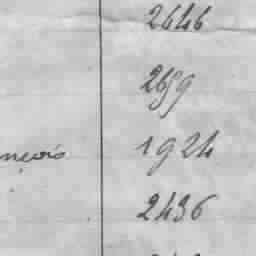 2646
2659
nçois 1924
2436